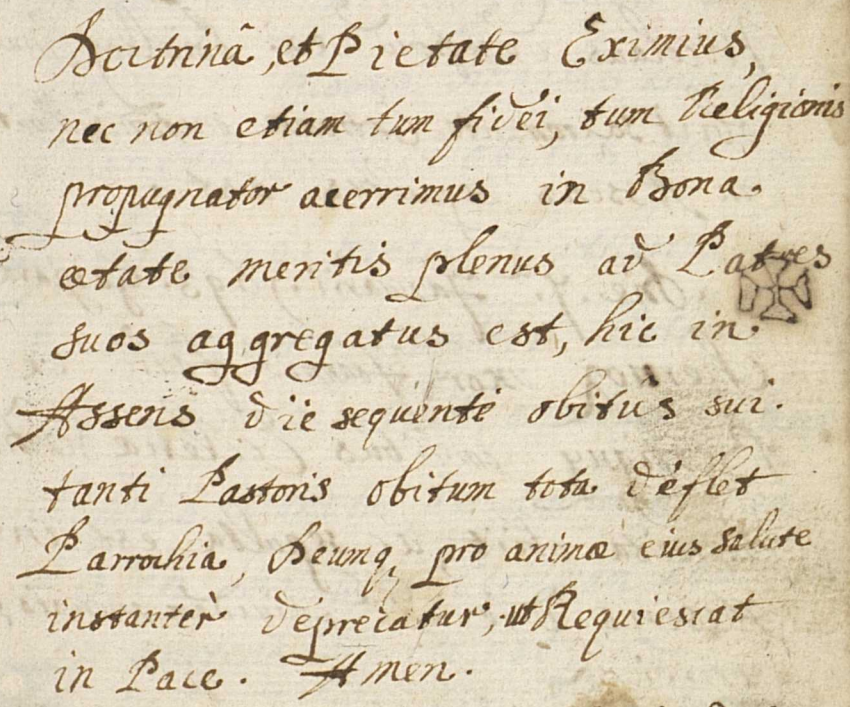 Doctrinâ, et Pietate Eximius,
nec non etiam tum fidei, tum Religionis
propugnator acerrimus in Bona
ætate meritis plenus ad Patres
suos aggregatus est, hic in
Assens die sequenti obitus sui.
tanti Pastoris obitum tota deflet
Parrochia, Deumq, pro animæ eius salute
instanter deprecatur, ut Requiescat
in Pace. Amen.